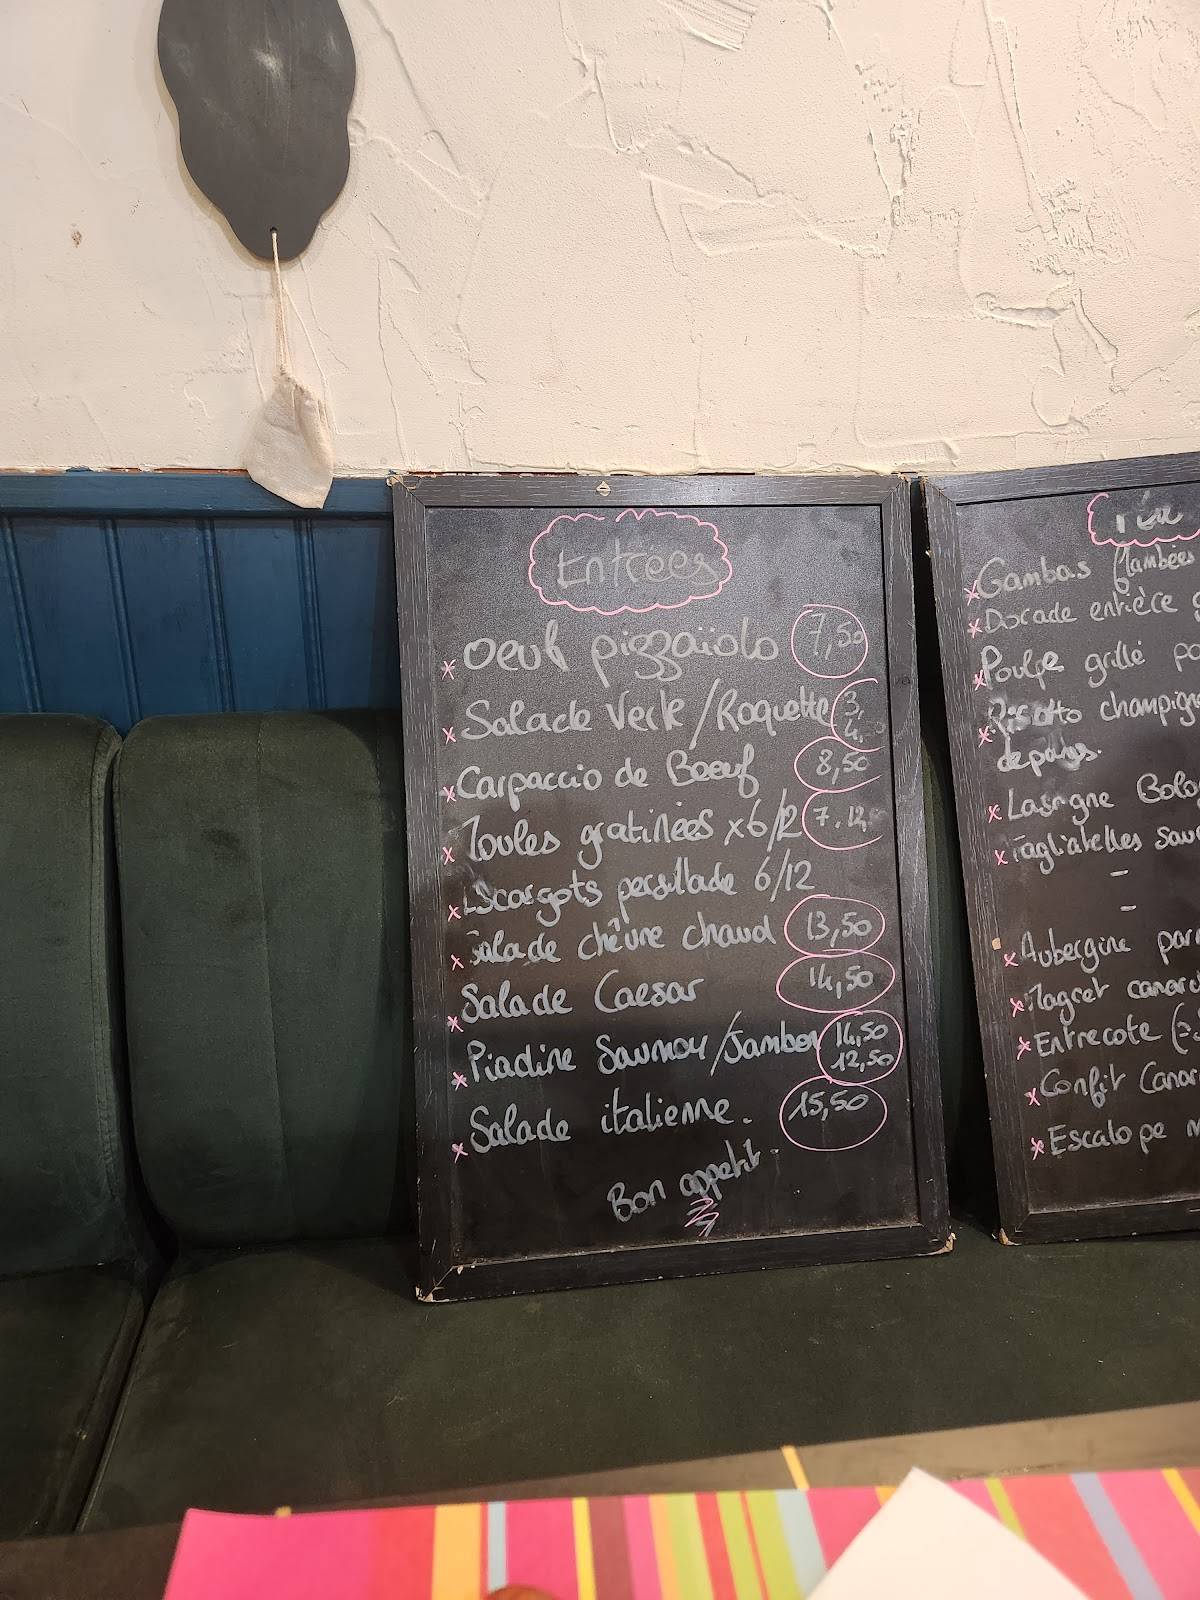 Entrées
Oeuf pizzaïolo 7,50
Salade Verte / Roquette 3, 4,
Carpaccio de Boeuf 8,50
Moules gratinées x6/12 7.12,
Escargots persillade 6/12
Salade chèvre chaud 13,50
Salade Caesar 14,50
Piadine Saumon / Jambon 14,50 12,50
Salade italienne. 15,50
Bon appetit.
Gambas flambées
Dorade entière
Poulpe grillé
Risotto champign
de paris.
Lasagne Bolo
Tagliatelles Sau
-
-
Aubergine par
Magret canar
Entrecote
Confit Canar
Escalope